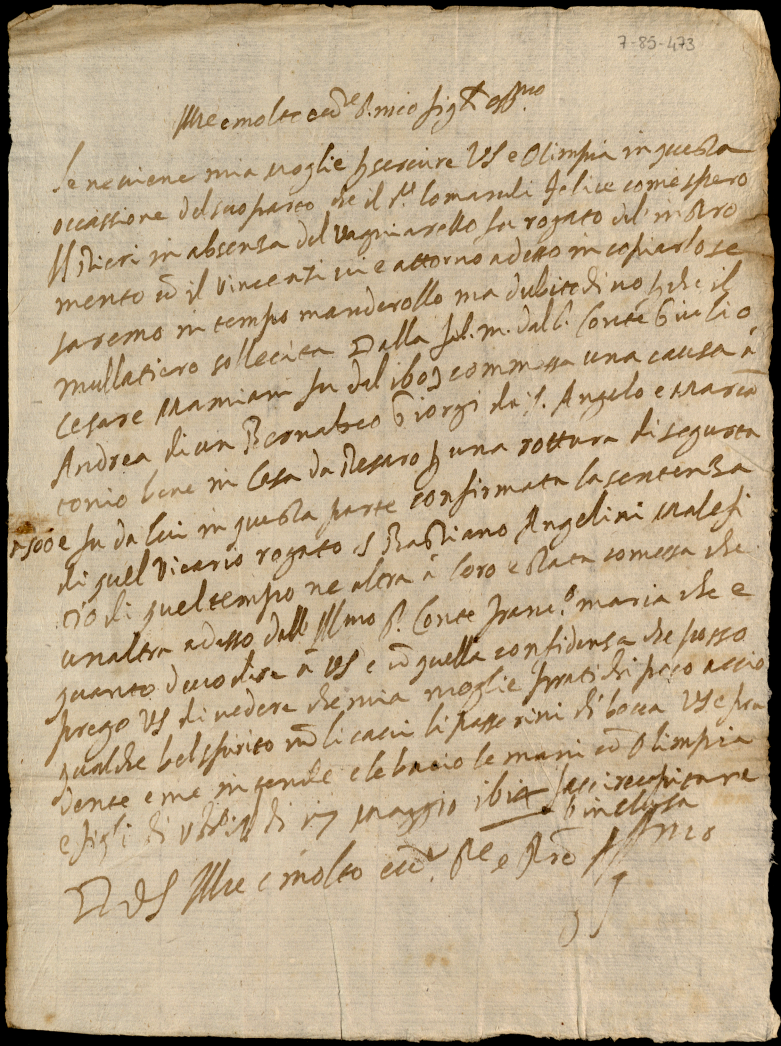 7-85-473
Ill.re e molto ecc.te S. mio sig.r oss.mo
Se ne viene mia moglie p servire VS e Olimpia in questa
occassione del suo parto che il s.r lo mandi felice come spero
Hieri in absenza del Vagniarello fu rogato del' instro
mento et il Vincenzi vi e attorno adesso in copiarlo se
saremo in tempo manderollo ma dubito di no p che il
mullatiero sollecita Dalla fel. m. dal S. Conte Giulio
Cesare Mamiani fu del 1603 commessa una causa à
Andrea di un Bernabeo Giorgi da S. Angelo e Marcã
tonio bene in Casa da Pesaro p una rottura di segurta
500 e fu da lui in questa parte confirmata la sentenza
di quel Vicario rogato s Bastiano Angelini Malefi
tio di quel tempo ne altra à loro e stata comessa che
un altra adesso dall Ill.mo S. Conte Franc.o maria che e
quanto devo dire à VS e cõ quella confidenza che posso
prego VS di vedere che mia moglie prati chi poco accio
qualche bel spirito nõ li cacci li passerini di bocca VS e pru
dente e me intende e le bacio le mani cõ Olimpia
e figli di di 17 Maggio 1614 facci recapitare
l'inclusa
D VS Ill.re e molto ecc.te S.re